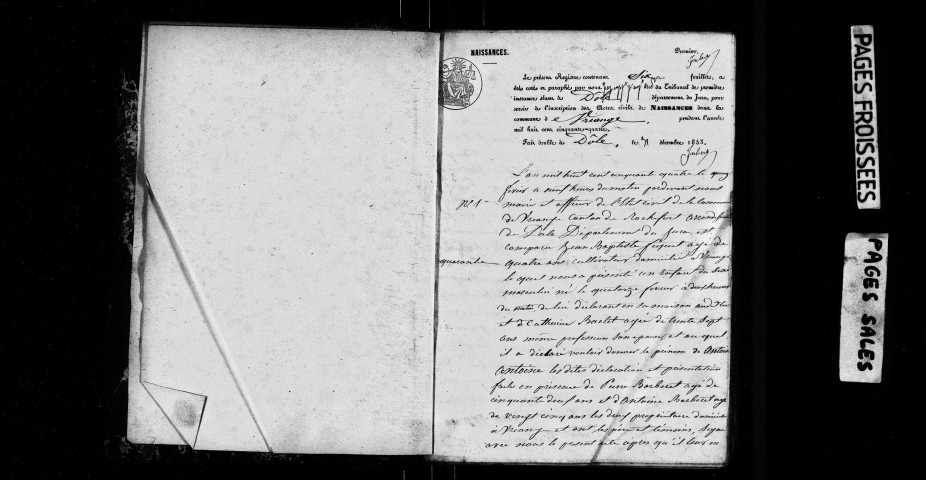 NAISSANCES.
Premier,
Le présent Registre contenant Six feuillets, a
été coté et paraphé par nous du Tribunal de première
instance séant à Dôle département du Jura, pour
servir à l'inscription des Actes civils de NAISSANCES dans la
commune d e Vriange, pendant l'année
mil huit cent cinquante-quatre.
Fait double à Dôle, le décembre 1853.
L'an mil huit cent cinquante quatre le quinze
février a neuf heures du matin pardevant nous
N° 1
maire et officier de l'Etat civil de la Commune
de Vriange Canton de Rochefort arrondissement
de Dôle Département du Jura, est
comparu Jean Baptiste agé de
quarante
quatre ans cultivateur domicilié à Vriange
lequel nous a présenté un Enfant du sexe
masculin né le quatorze février à heures
du matin de lui déclarant en sa maison
et d Catherine agée de trente sept
ans même profession son epouse, et au quel
il a déclaré vouloir donner le prénom de Antoine
Antoine les dites déclaration et présentation
faite en présence de Pierre Barberet agé de
cinquante deux ans et d'Antoine Barberet agé
de vingt cinq ans les deux propriétaire domicilié
à Vriange et ont les père et témoins, signé
avec nous le present acte après qu'il leur en
PAGES FROISSEES
PAGES SALES